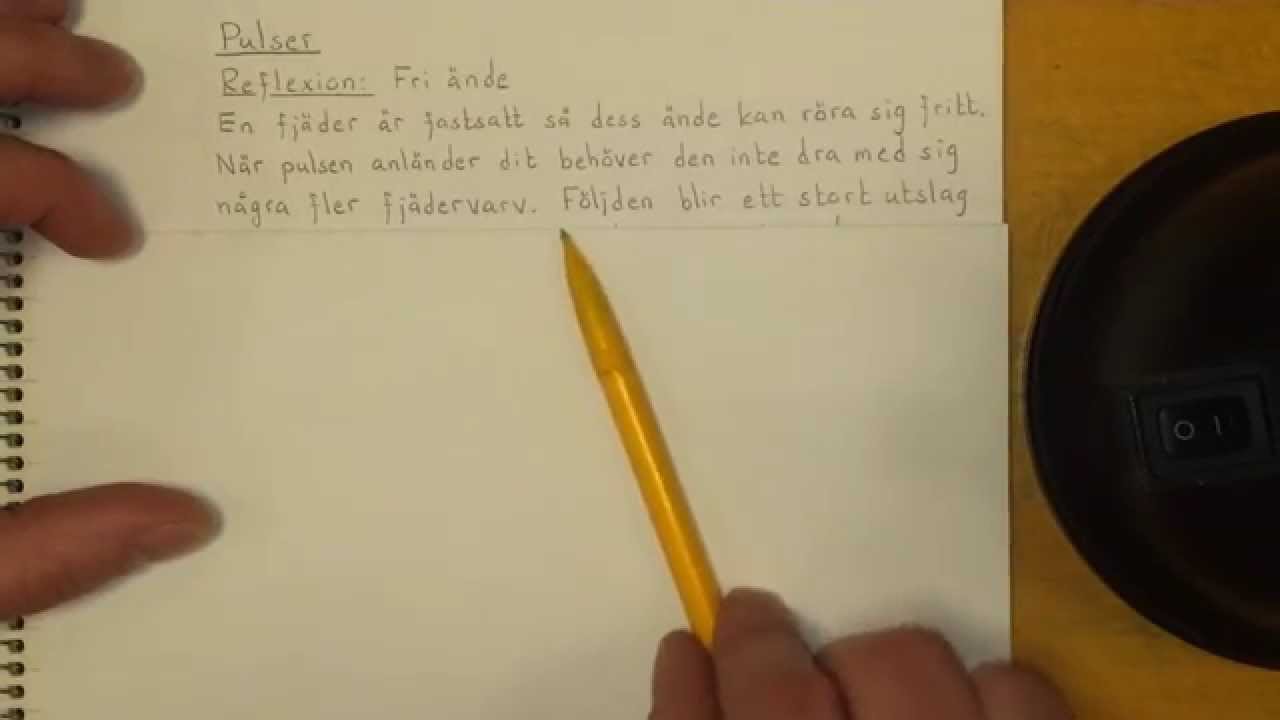 Pulser
Reflexion: Fri ände
En fjäder är fastsatt så dess ände kan röra sig fritt.
När pulsen anländer dit behöver den inte dra med sig
några fler fjädervarv. Följden blir ett stort utslag